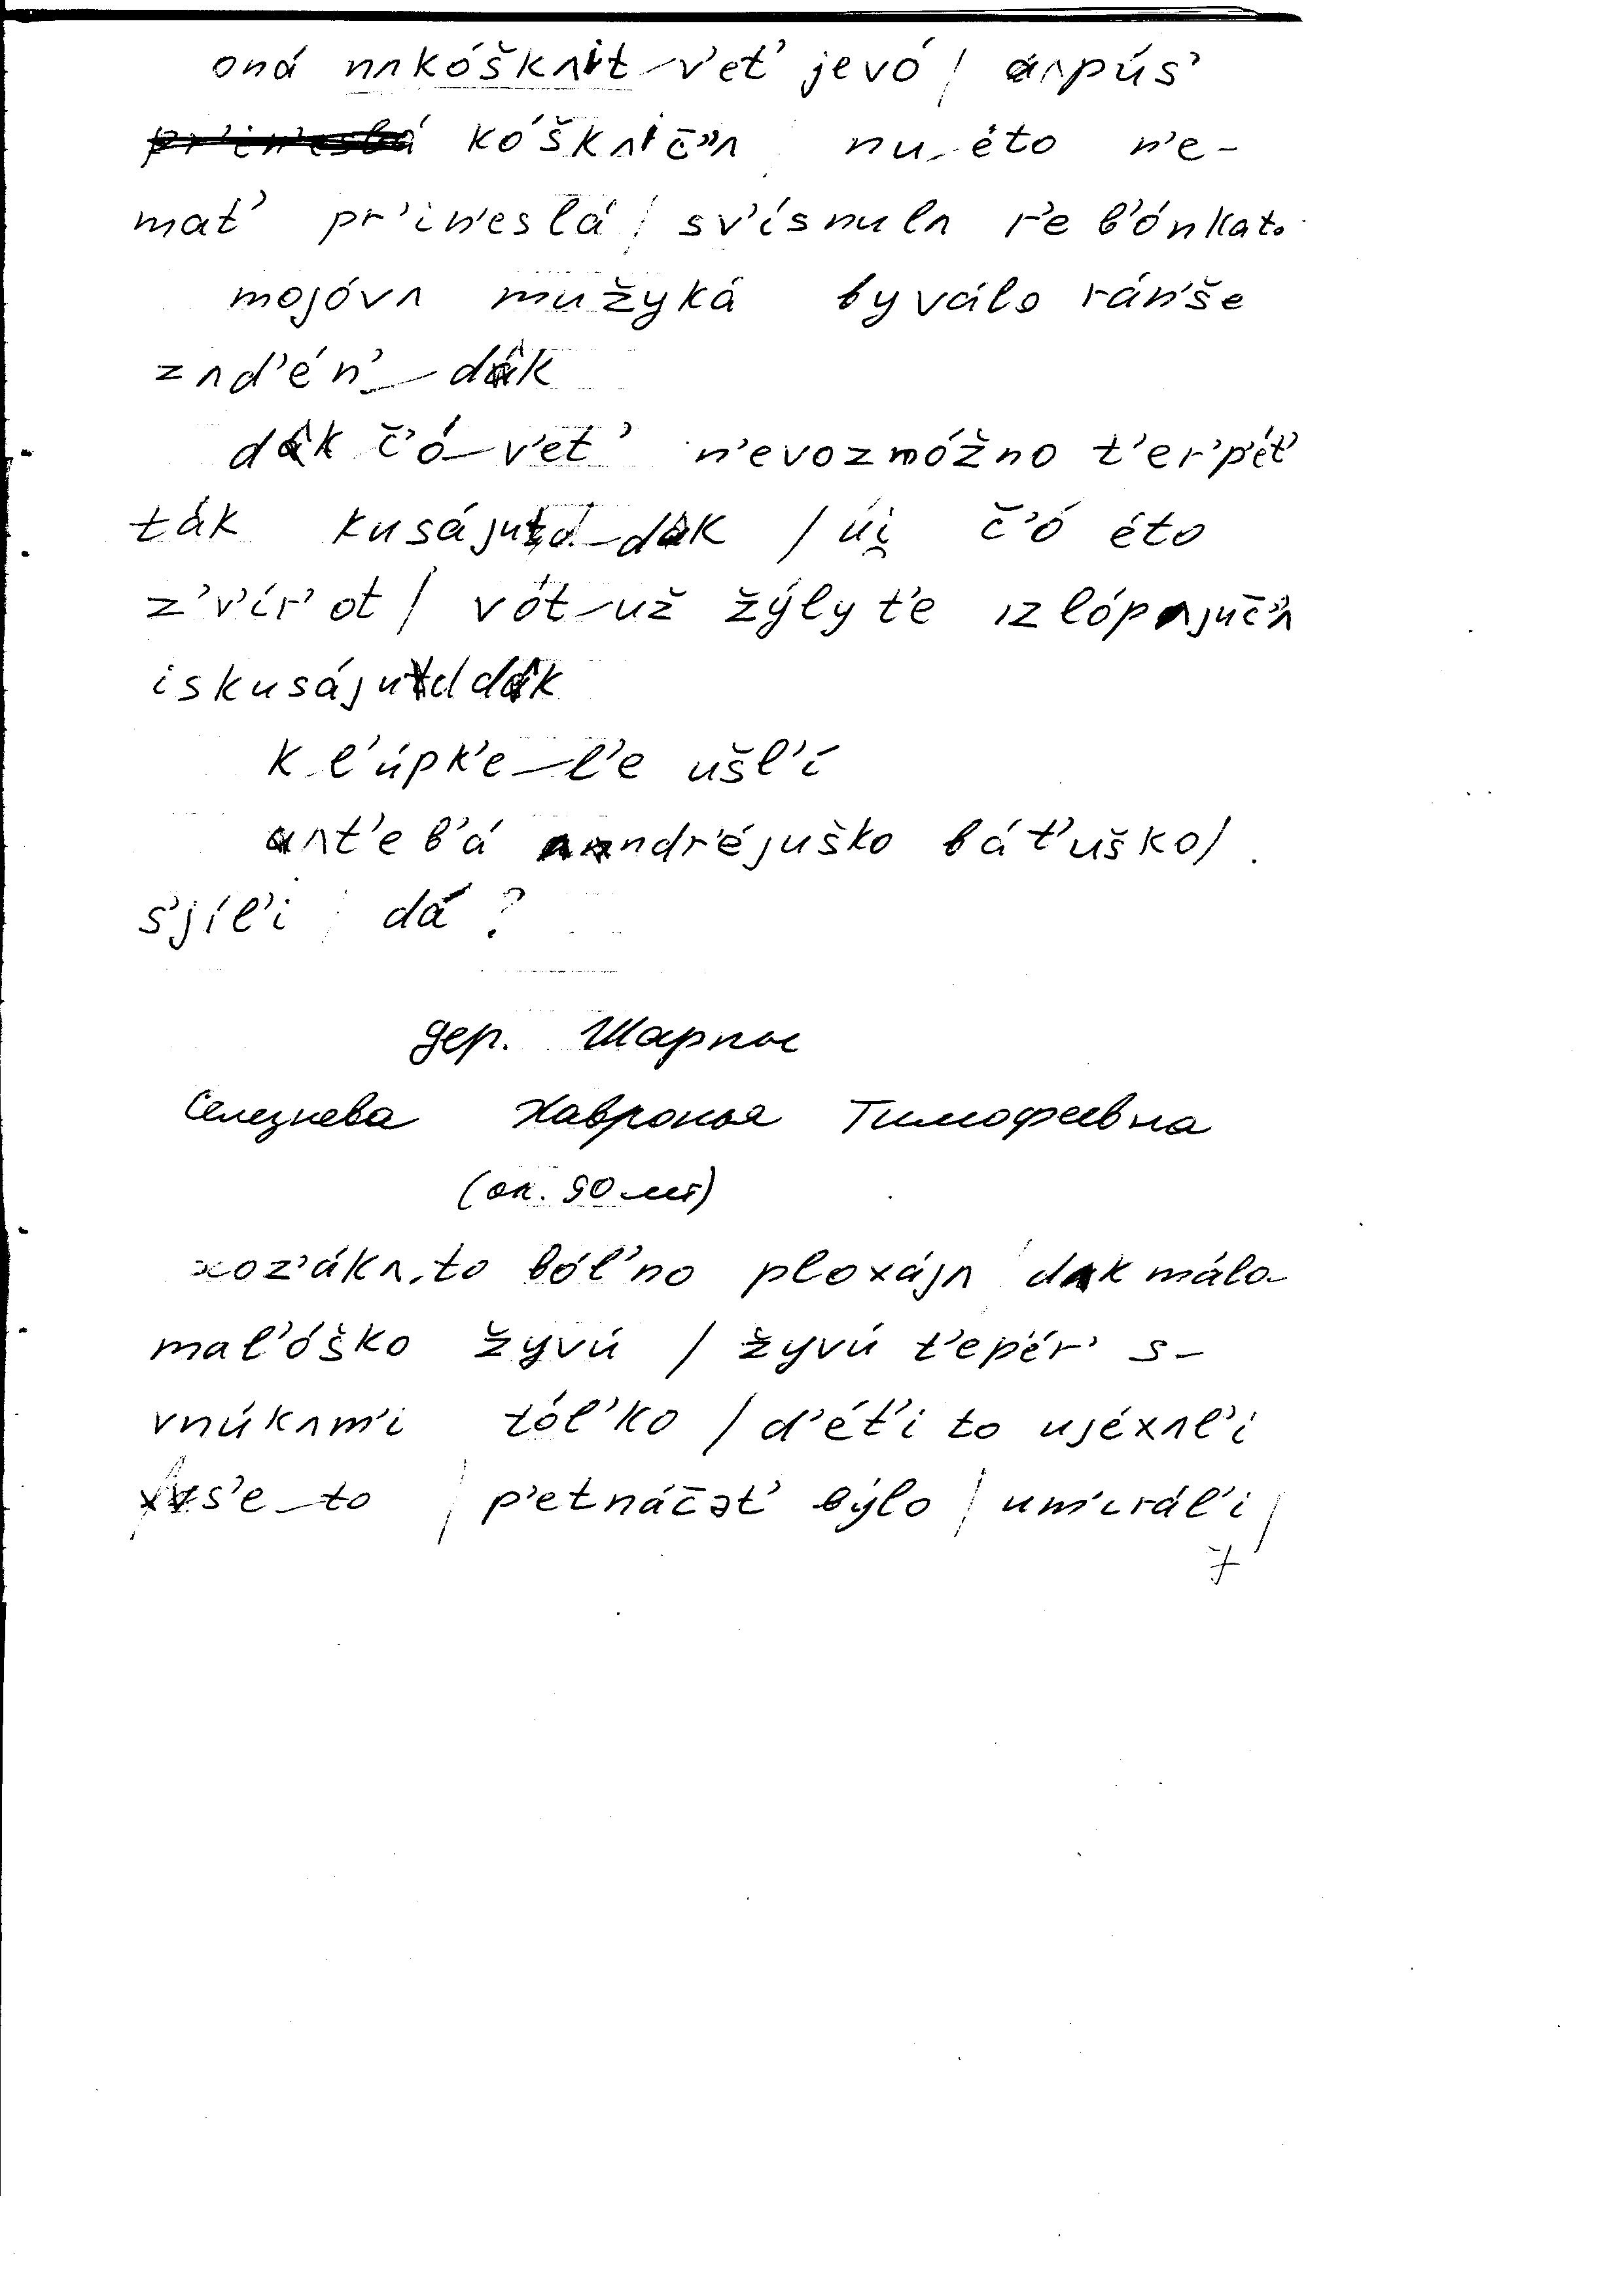 oná nʌkóškʌit‿v'et' jevó / ʌpús'
kóškʌič'ʌ nu‿éto n'e-
mat' pr'in'eslá / sv'ísnulʌ r'eb'ónkato
mojóvʌ mužyká byválo rán'še
zʌd'én'‿dʌk
dʌk č'ó‿v'et' n'evozmóžno t'er'p'ét'
ták kusájud‿dʌk / úi̯ č'ó éto
z'v'ír'ot / vót‿už žýlyt'e izlópʌjuč'ʌ
iskusájud dʌk
kl'úpk'e‿l'e ušl'í
ʌt'eb'á ʌndr'éjuško bát'uško /
s'jíl'i / dá ?
дер. Шарпы
Селезнева Хавронья Тимофеевна
(ок. 90 лет)
xoz'ákʌ‿to ból'no ploxájʌ dʌk málo-
mal'óško žyvú / žyvú t'ep'ér' s-
vnúkʌm'i tól'ko / d'ét'i to ujéxʌl'i
fs'e‿to / p'etnáčət' býlo / um'irál'i /
7